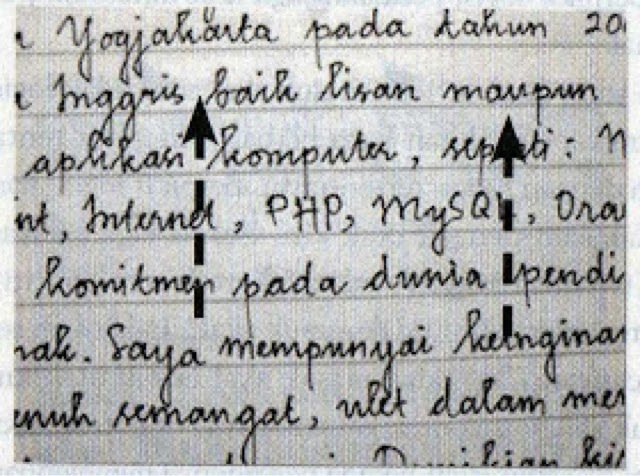 Yogjakarta pada tahun 20
Inggris baik lisan maupun
aplikasi komputer, seperti:
nt, Internet, PHP, MySQL, Ora
komitmen pada dunia pendi
nak. Saya mempunyai keinginan
enuh semangat, ulet dalam mer
Demikian